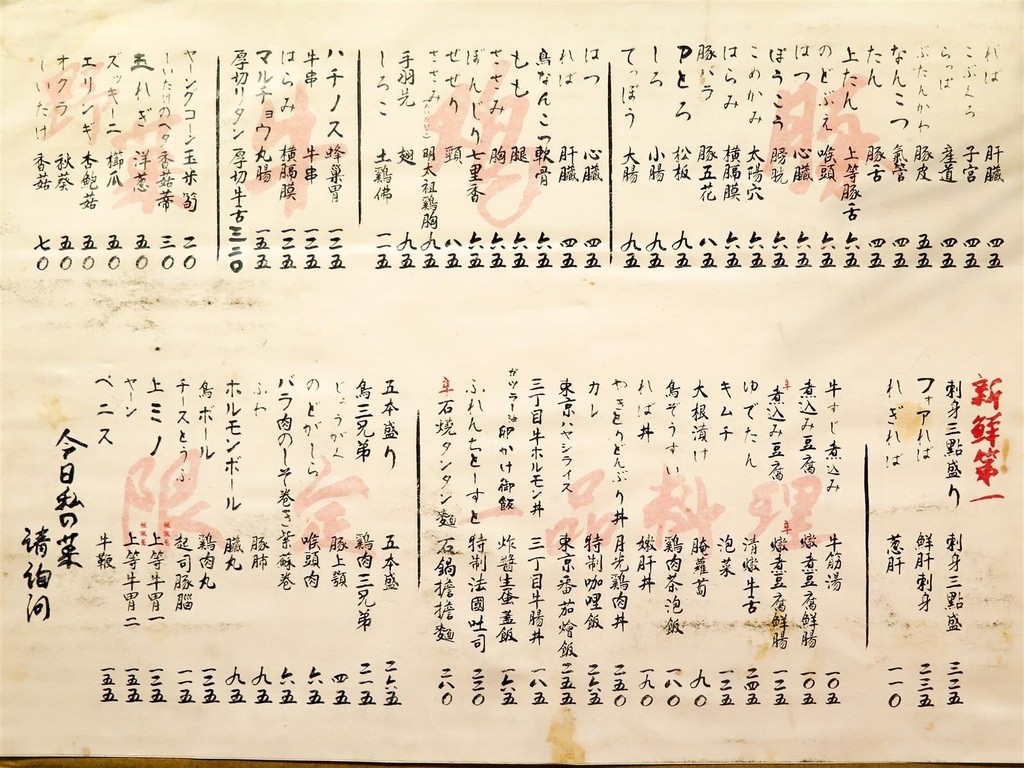 豚
れば 肝臓 四五
こぶくろ 子宮 四五
らっぱ 産道 四五
ぶたんかわ 豚皮 五五
なんこつ 氣管 四五
たん 豚舌 四五
上たん 上等豚舌 六五
のどぶえ 喉頭 六五
はつ 心臓 六五
ぼうこう 膀胱 六五
こめかみ 太陽穴 六五
はらみ 横膈膜 六五
豚バラ 豚五花 八五
Pとろ 松板 九五
しろ 小腸 九五
てっぽう 大腸 九五
鶏
はつ 心臓 四五
れば 肝臓 四五
鳥なんこつ 軟骨 六五
もも 腿 六五
ささみ 胸 六五
ぼんじり 七里香 六五
せせり 頸 八五
ささみ 明太祖鶏胸 九五
手羽先 翅 九五
しろこ 土鶏佛 一一五
牛
ハチノス 蜂巣胃 一二五
牛串 牛串 一二五
はらみ 横膈膜 一二五
マルチョウ 丸腸 一五五
厚切りタン 厚切牛舌 三二〇
野菜
ヤングコーン 玉米筍 二〇
しいたけのへタ 香菇蒂 三〇
玉ねぎ 洋蔥 五〇
ズッキーニ 櫛瓜 五〇
エリンギ 杏鮑菇 五〇
オクラ 秋葵 五〇
しいたけ 香菇 七〇
新鮮第一
刺身三點盛り 刺身三點盛 三二五
フォアれば 鮮肝刺身 二三五
ねぎれば 蔥肝 一一〇
一品料理
牛すじ煮込み 牛筋湯 一〇五
隼 煮込み豆腐 隼 燉煮豆腐鮮腸 一〇五
煮込み豆腐 燉煮豆腐鮮腸 一二五
ゆでたん 清燉牛舌 二四五
キムチ 泡菜 一二五
大根漬け 腌蘿蔔 九〇
鳥ぞうすい 鶏肉茶泡飯 一八〇
ればー丼 嫩肝丼 一九〇
やきとりどんぶり丼 月見鶏肉丼 二五〇
カレー 特制咖哩飯 二六五
東京ハヤシライス 東京番茄燴飯 二五五
三丁目牛ホルモン丼 三丁目牛腸丼 一八五
ガツラー油 卵かけ御飯 炸醬生蛋蓋飯 一六五
ふれんちとーすと 特制法國吐司 二三〇
隼 石焼タンタン麵 石鍋擔擔麵 二八〇
限定
五本盛り 五本盛 二六五
鳥三兄弟 鶏肉三兄弟 二一五
じょうがく 豚上顎 四五
のどがしら 喉頭肉 六五
バラ肉のしそ巻き 紫蘇巻 六五
ふわ 豚肺 九五
ホルモンボール 臓丸 九五
鳥ボール 鶏肉丸 一三五
チーズとうふ 起司豚腦 一一五
上ミノ 上等牛胃一 一三五
ヤーン 上等牛胃二 一五五
ペニス 牛鞭 一五五
今日私の菜
請詢問